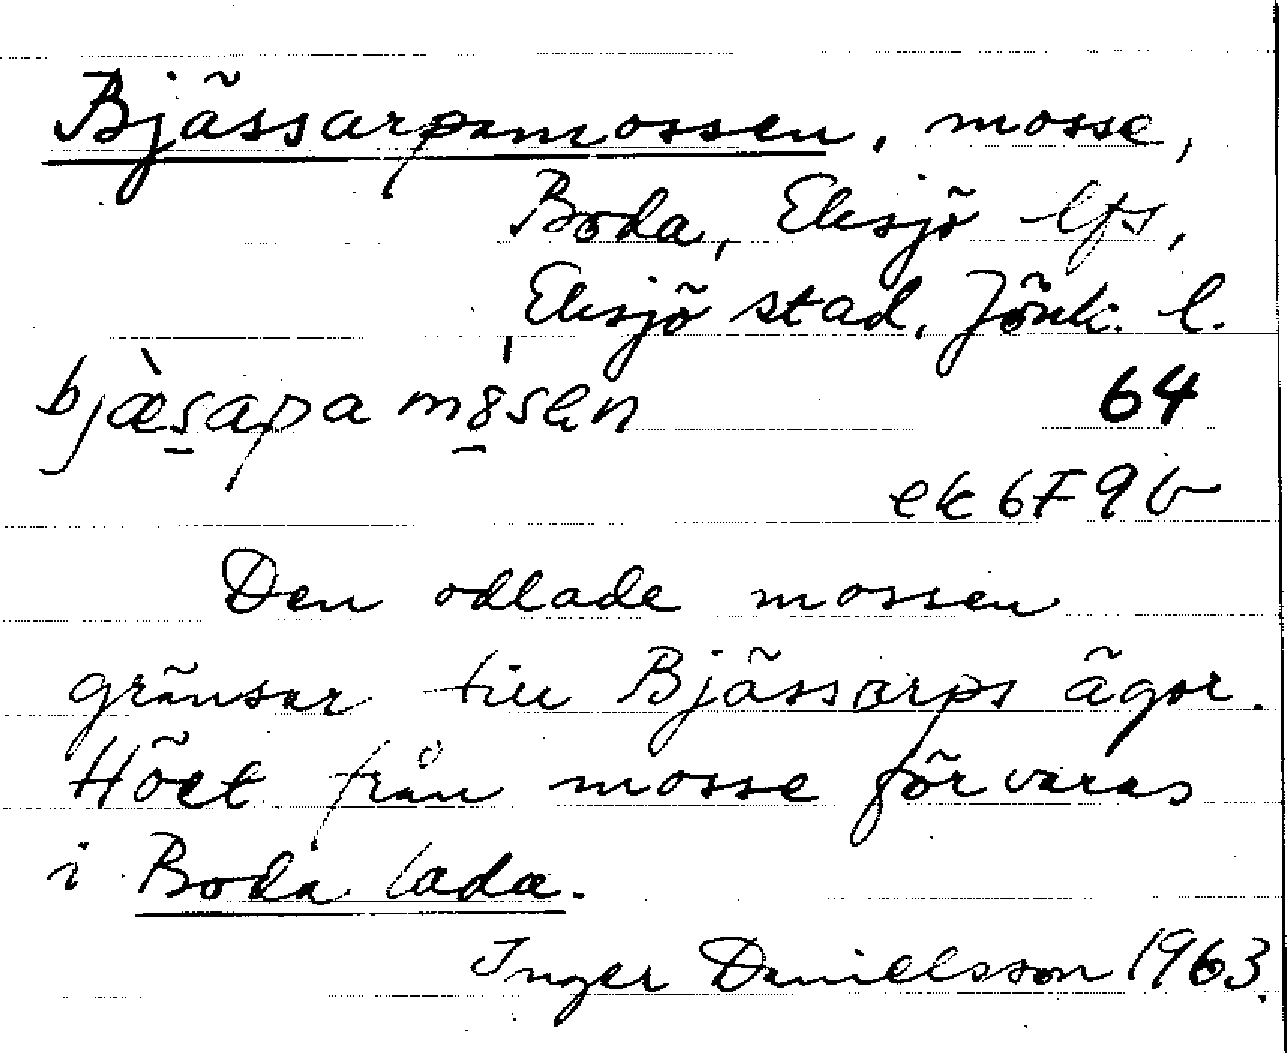 Bjässarpamossen, mosse,
Boda, Eksjö lfs,
Eksjö stad, Jönk. l.
bjæ̀sapamósen 64
ek 6F9b
Den odlade mossen
gränsar till Bjässarps ägor.
Höet från mosse förvaras
i Boda lada.
Inger Danielsson 1963.